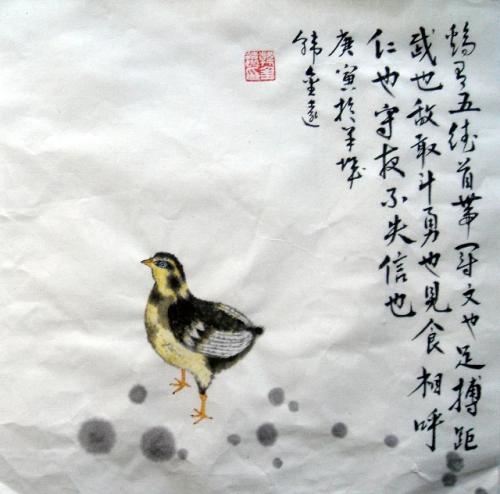 鸡有五德首带冠文也足搏距
武也敌敢斗勇也見食相呼
仁也守夜不失信也
庚寅於羊城
韩金遠